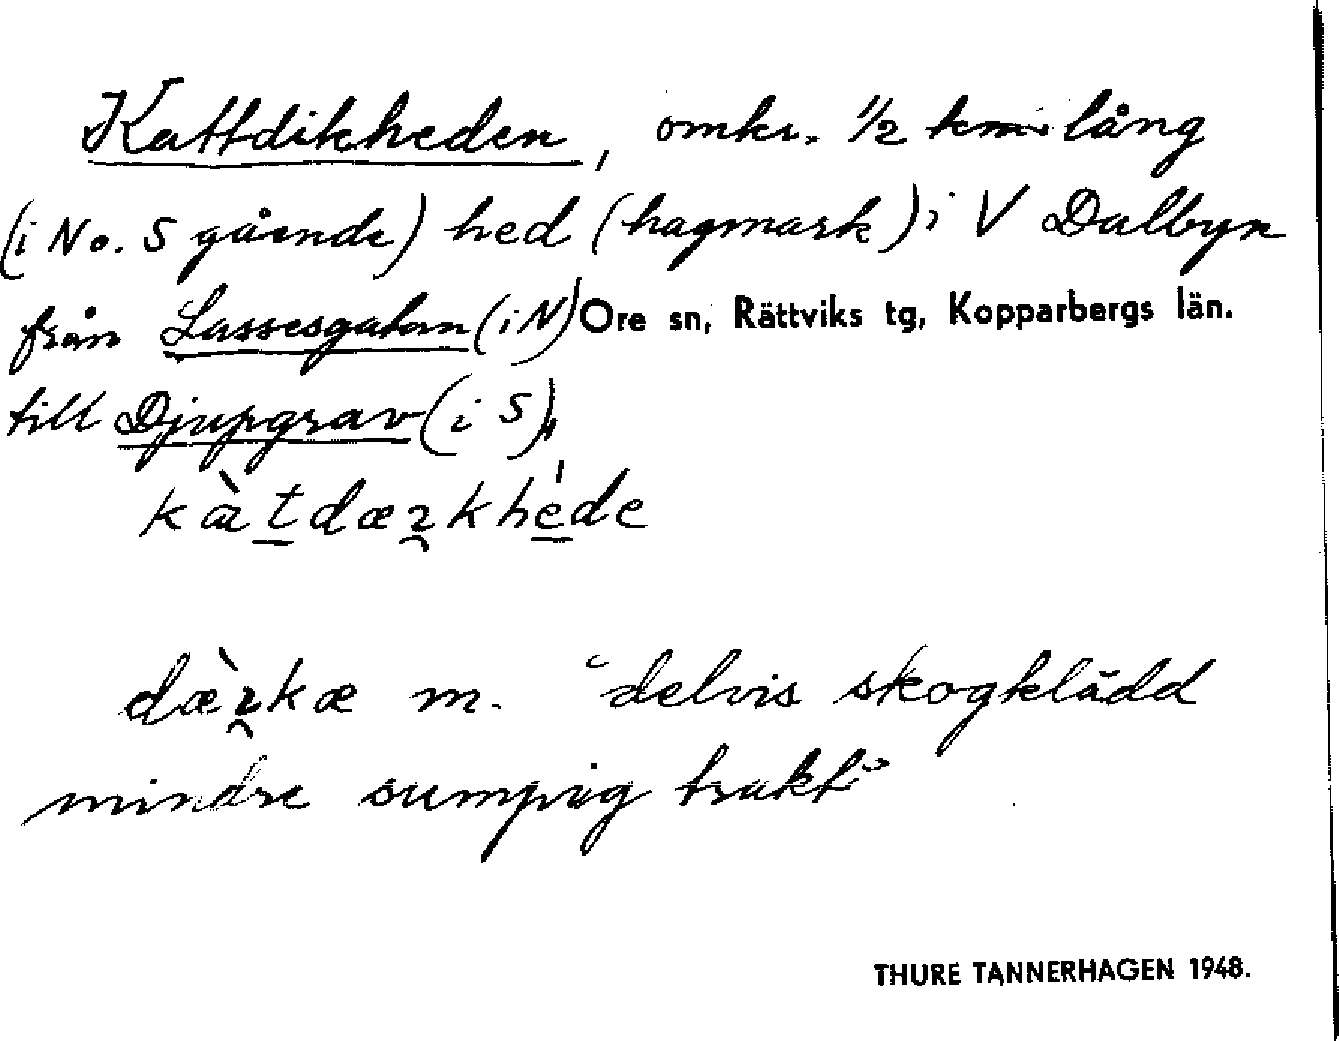 Kattdikheden, omkr. 1/2 km lång
(i N o. S gående) hed (hagmark) i V Dalbyn
från Lassesgatan (i N) Ore sn, Rättviks tg, Kopparbergs län.
till Djupgrav (i S),
m. "delvis skogklädd
mindre sumpig trakt"
THURE TANNERHAGEN 1948.